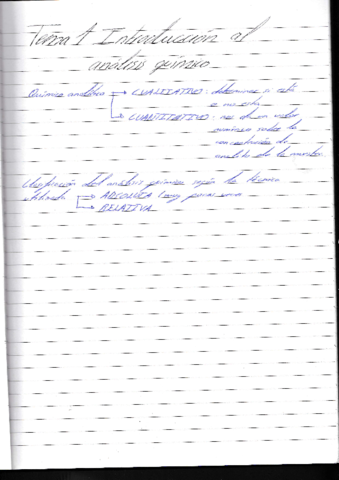 Tema 1 Introducción al
análisis químico
Química analítica → CUALITATIVO: determinar si está
o no está
→ CUANTITATIVO: nos da un valor
numérico sobre la
concentración de
analito de la muestra.
Clasificación del análisis químico según la técnica
utilizada → ABSOLUTA (muy pocas
→ RELATIVA